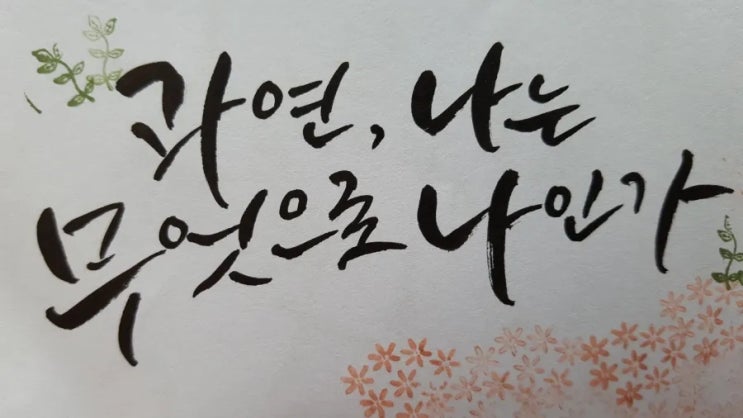 과연, 나는
무엇으로 나인가